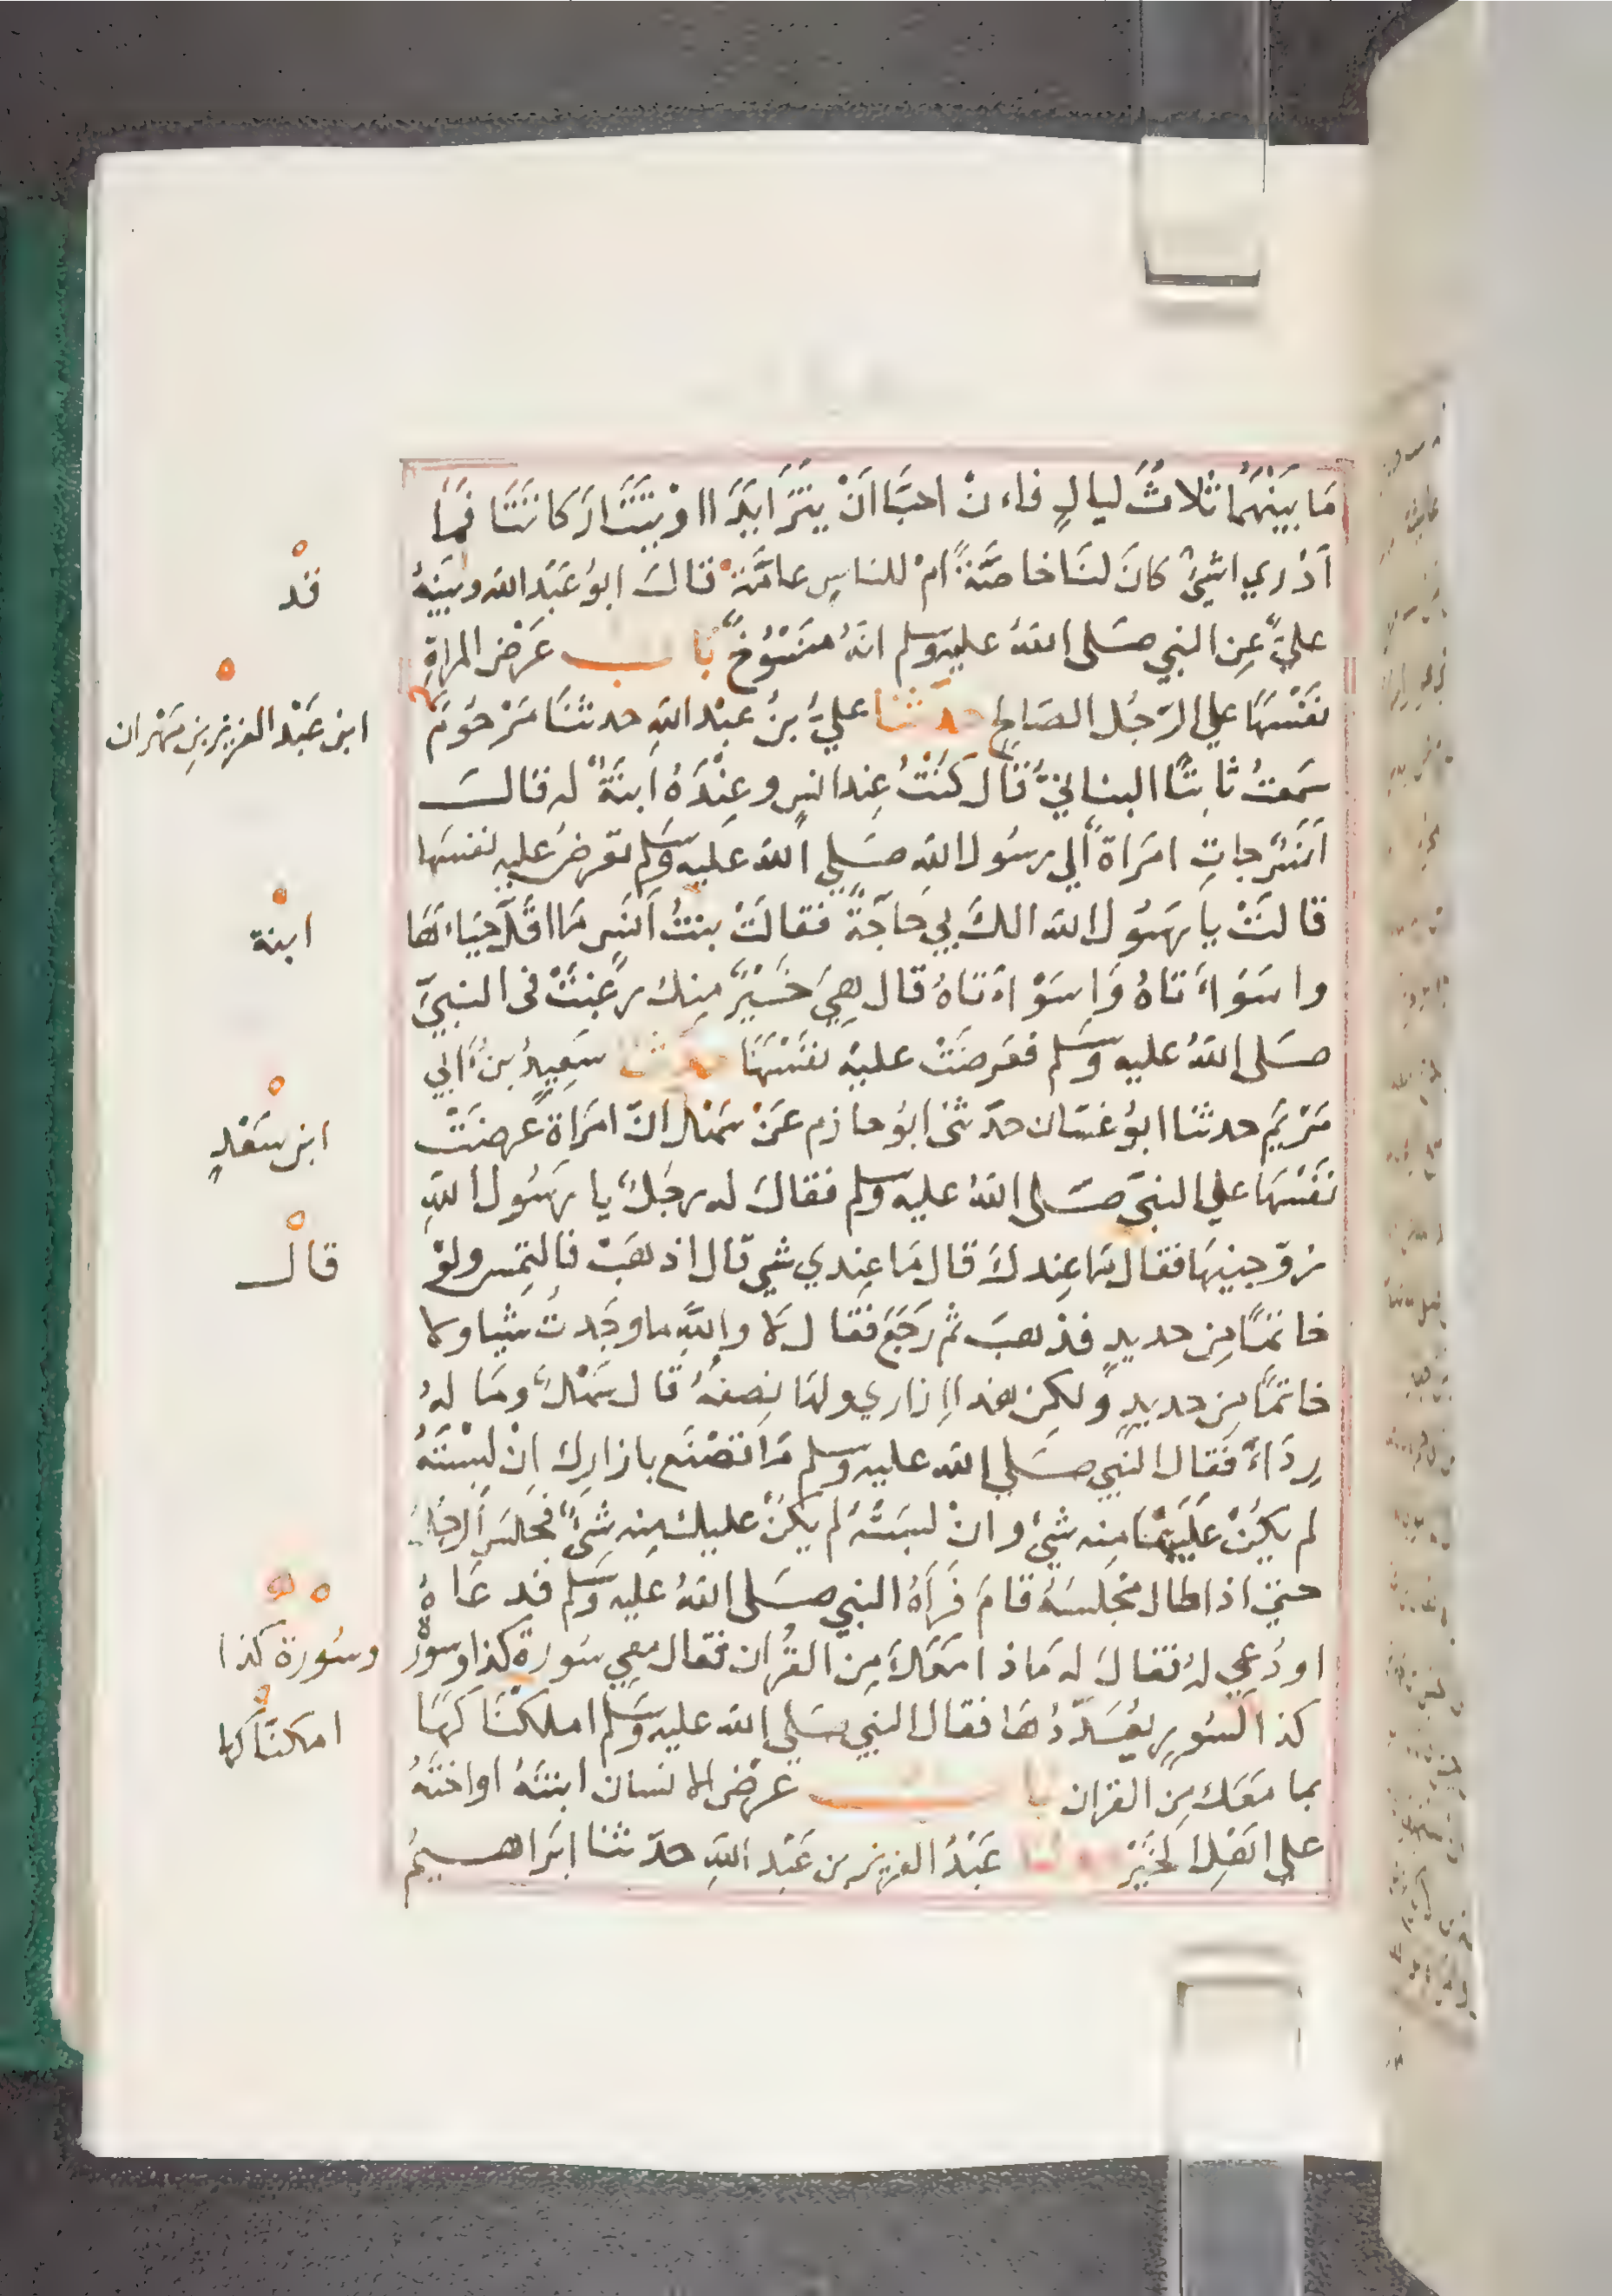 مَا بَيْنَهُمَا ثلاثُ ليالٍ فاءنْ احبَّا اَنْ يتَزَايَدَا اوْ يتَتَارَكا تَتَارَكَا فَمَا
اَدْرِي اشيْءٌ كانَ لنَا خاصَّةً امْ للناسِ عامَّةً قالَ ابوُ عَبْدِ الله وبيَّنهُ
عليٌّ عنِ النبي صَلى اللهُ عليه وسلم انهُ مَنْسُوخٌ بَاب عَرْضِ المراةِ
نفسَهَا علي الرَّجُل الصَالحِ حدثنا عليُّ بنُ عبْد اللهِ حدثنَا مَرْحُومٌ
سَمعتُ ثابتًا البنانيَّ قَال كنْتُ عِند انسٍ وعِنْدَهُ ابنَةٌ له قالَ
اَنَسٌ جاتِ امرَاةٌ الي رسُول الله صَلي اللهُ عليه وسَلم تعرضُ عليهِ نفسَهَا
قالتْ يا رسُول الله الكَ بي حَاجَةٌ فقالَتْ بنتُ اَنسٍ مَا اقلَّ حيَاءَهَا
واسَوْاَتاهُ وَاسَوْاَتاهُ قال هِيَ خيْرٌ مِنك رَغِبَتْ فى النبيِّ
صَلى اللهُ عليه وسَلم فعَرضَتْ عليْهِ نفسَهَا حدثنا سَعِيدُ بنُ ابي
مَرْيمَ حدثنا ابوُ غسَان حدَّثنى ابوُ حازم عَنْ سَهْل انَّ امرَاةً عرضَتْ
نفْسَهَا علي النبيِّ صَلى اللهُ عليه وسَلم فقالَ له رجُلٌ يا رسُول اللهِ
زوّجنيهَا فقال مَا عِندكَ قال مَا عِندي شي قال اذهَبْ فالتمِس ولوْ
خاتمًا مِن حديدٍ فذهبَ ثم رَجَعَ فقَال لا واللهِ ما وجَدتُ شيا ولا
خاتمًا مِن حديدٍ ولكِن هذا اِزاري ولهَا نِصفهُ قال سَهْلٌ ومَا لهُ
رِدَاءٌ فقال النبي صَلي الله عليه وسَلم مَا تصْنَع بازاركِ اِنْ لبسْتَهُ
لم يكنْ عَليهَا مِنه شيْ وانْ لبسَتْهُ لم يكنْ عليك مِنه شيْءٌ فجلسَ الرجُلُ
حتي اذا طال مجْلسَهُ قامَ فرَآهُ النبي صَلى اللهُ عليه وسَلم فدعَاهُ
او دُعِي لهُ فقالَ له مَاذا معَكَ مِن القُران فقال معِي سُورَة كذا وسورة
كذا لسُورٍ يُعَدِّدُهَا فقال النبي صَلى الله عليه وسَلم املكنَاكهَا
بما معَك مِن القران باب عرْضِ الانسان ابنتَهُ او اختَهُ
على اهْلِ الخيْرِ حدثنا عَبْدُ العزيز بن عَبْد اللهِ حدَّثنا ابرَاهيمُ
قدْ
ابن عَبْد العزيز بنِ مَهْران
ابنة
ابن سَعْدٍ
قال
وسُورة كذا
امكنَّاكها